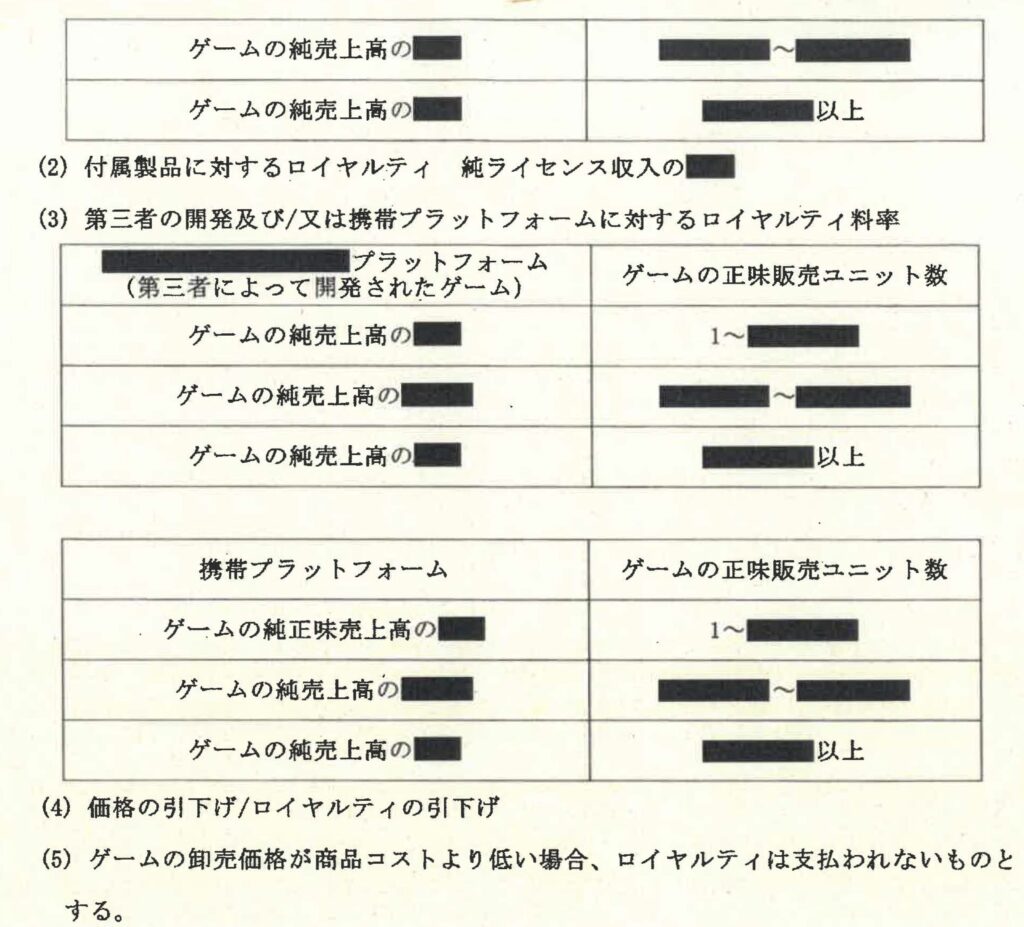 ゲームの純売上高の
～
ゲームの純売上高の
以上
(2) 付属製品に対するロイヤルティ　純ライセンス収入の
(3) 第三者の開発及び/又は携帯プラットフォームに対するロイヤルティ料率
プラットフォーム
(第三者によって開発されたゲーム)
ゲームの正味販売ユニット数
ゲームの純売上高の
1～
ゲームの純売上高の
～
ゲームの純売上高の
以上
携帯プラットフォーム
ゲームの正味販売ユニット数
ゲームの純正味売上高の
1～
ゲームの純売上高の
～
ゲームの純売上高の
以上
(4) 価格の引下げ/ロイヤルティの引下げ
(5) ゲームの卸売価格が商品コストより低い場合、ロイヤルティは支払われないものと
する。